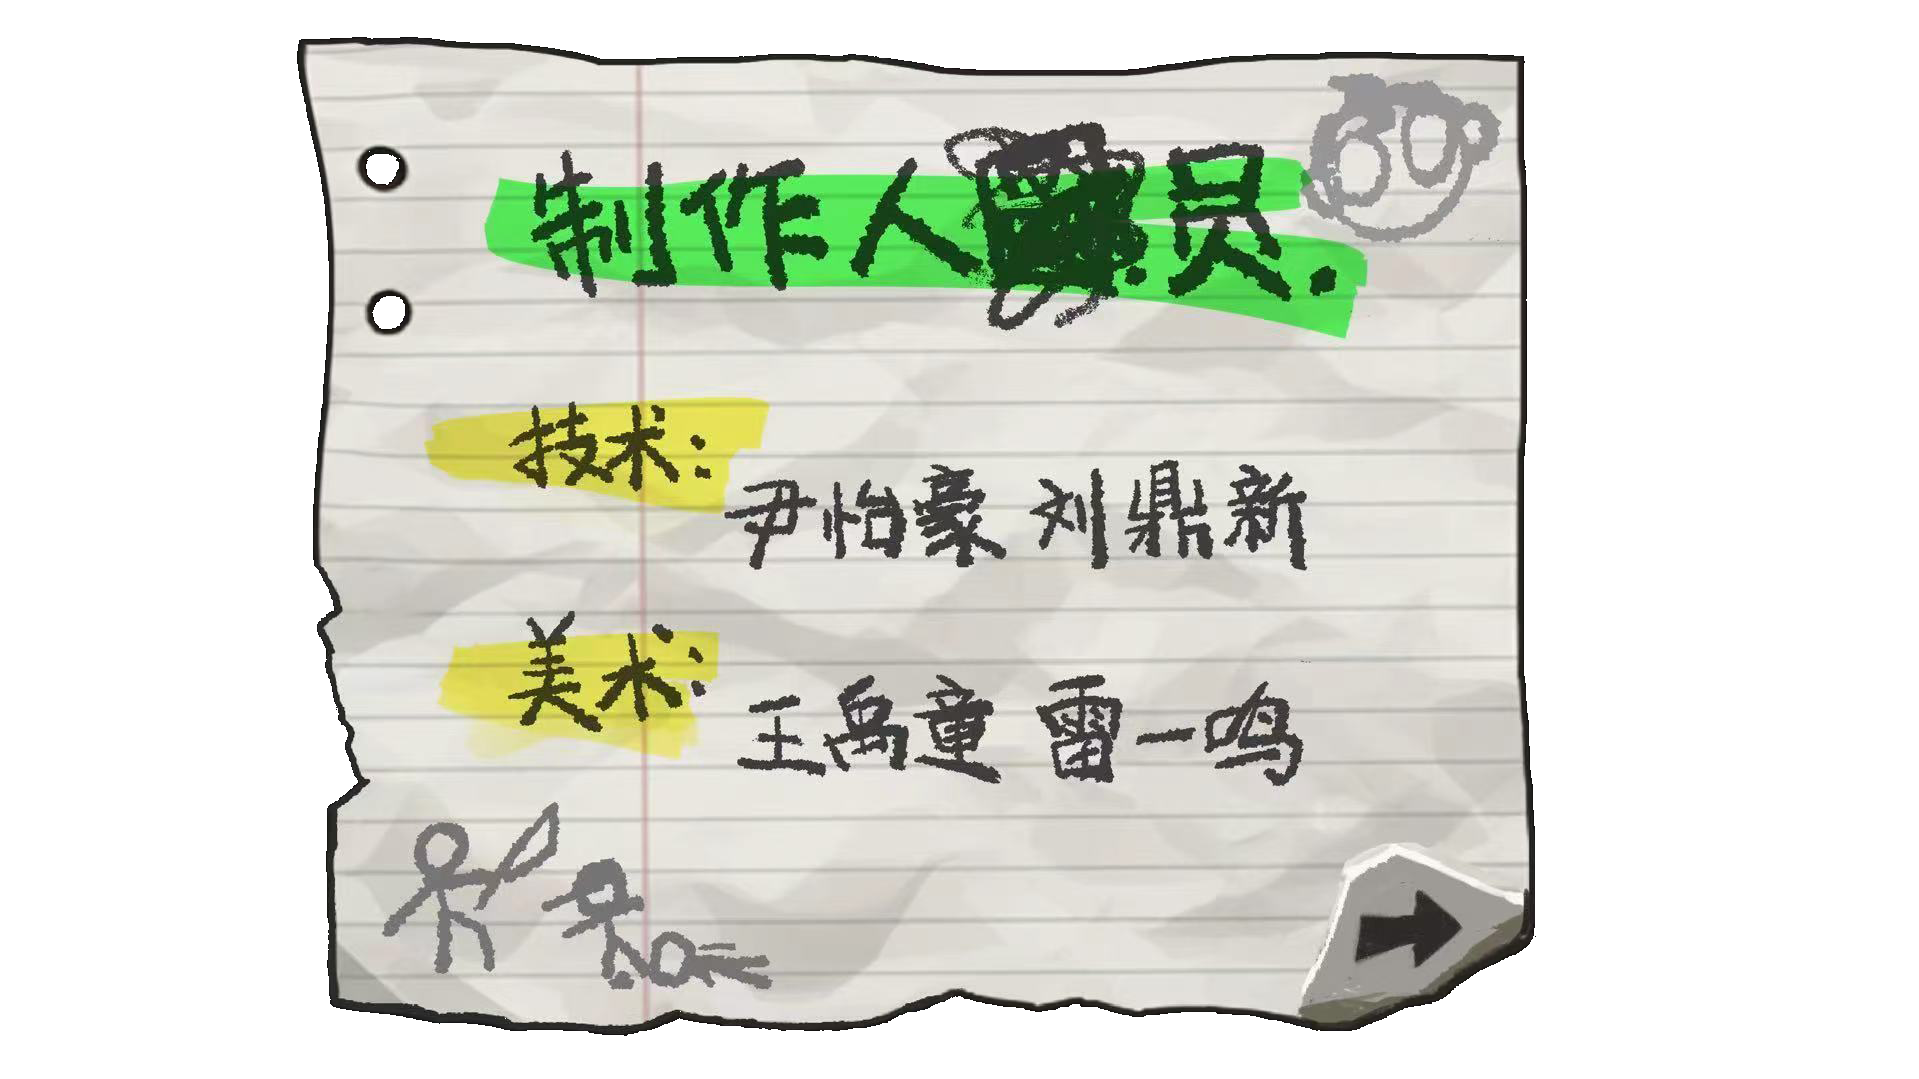 制作人员.
技术:
尹怡豪 刘鼎新
美术:
王禹童 雷一鸣